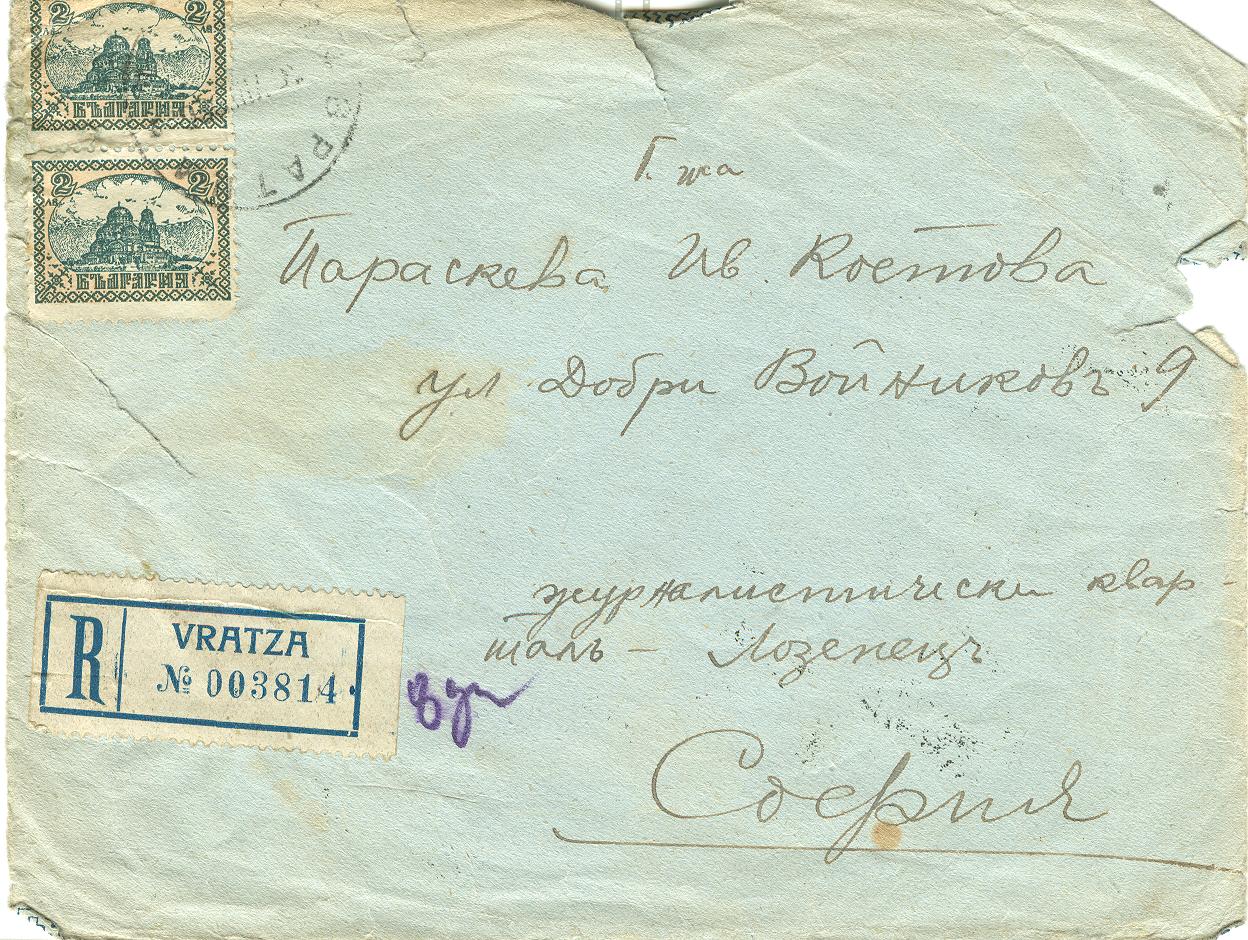 2 2
лв
БЪЛГАРИЯ
2 2
лв лв
БЪЛГАРИЯ
ВРАЦА
Г. жа
Параскева Ив. Костова
ул Добри Войниковъ 9
журналистически квар-
талъ - Лозенецъ
София
R VRATZA
№ 003814